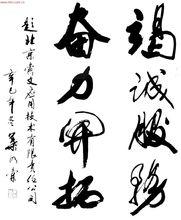 竭诚服务
奋力开拓
题北京实文应用技术有限责任公司
辛巳年冬